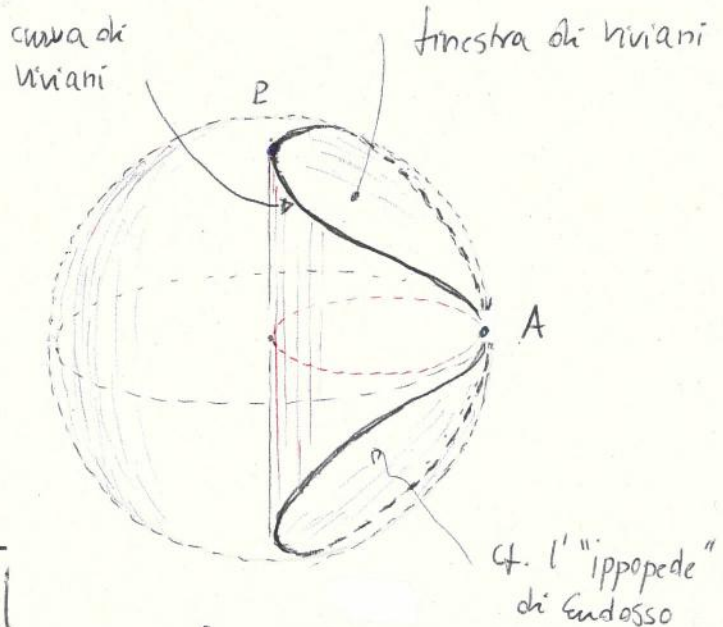 curva di
Viviani
finestra di Viviani
P
A
cf. l' "ippopede"
di Eudosso